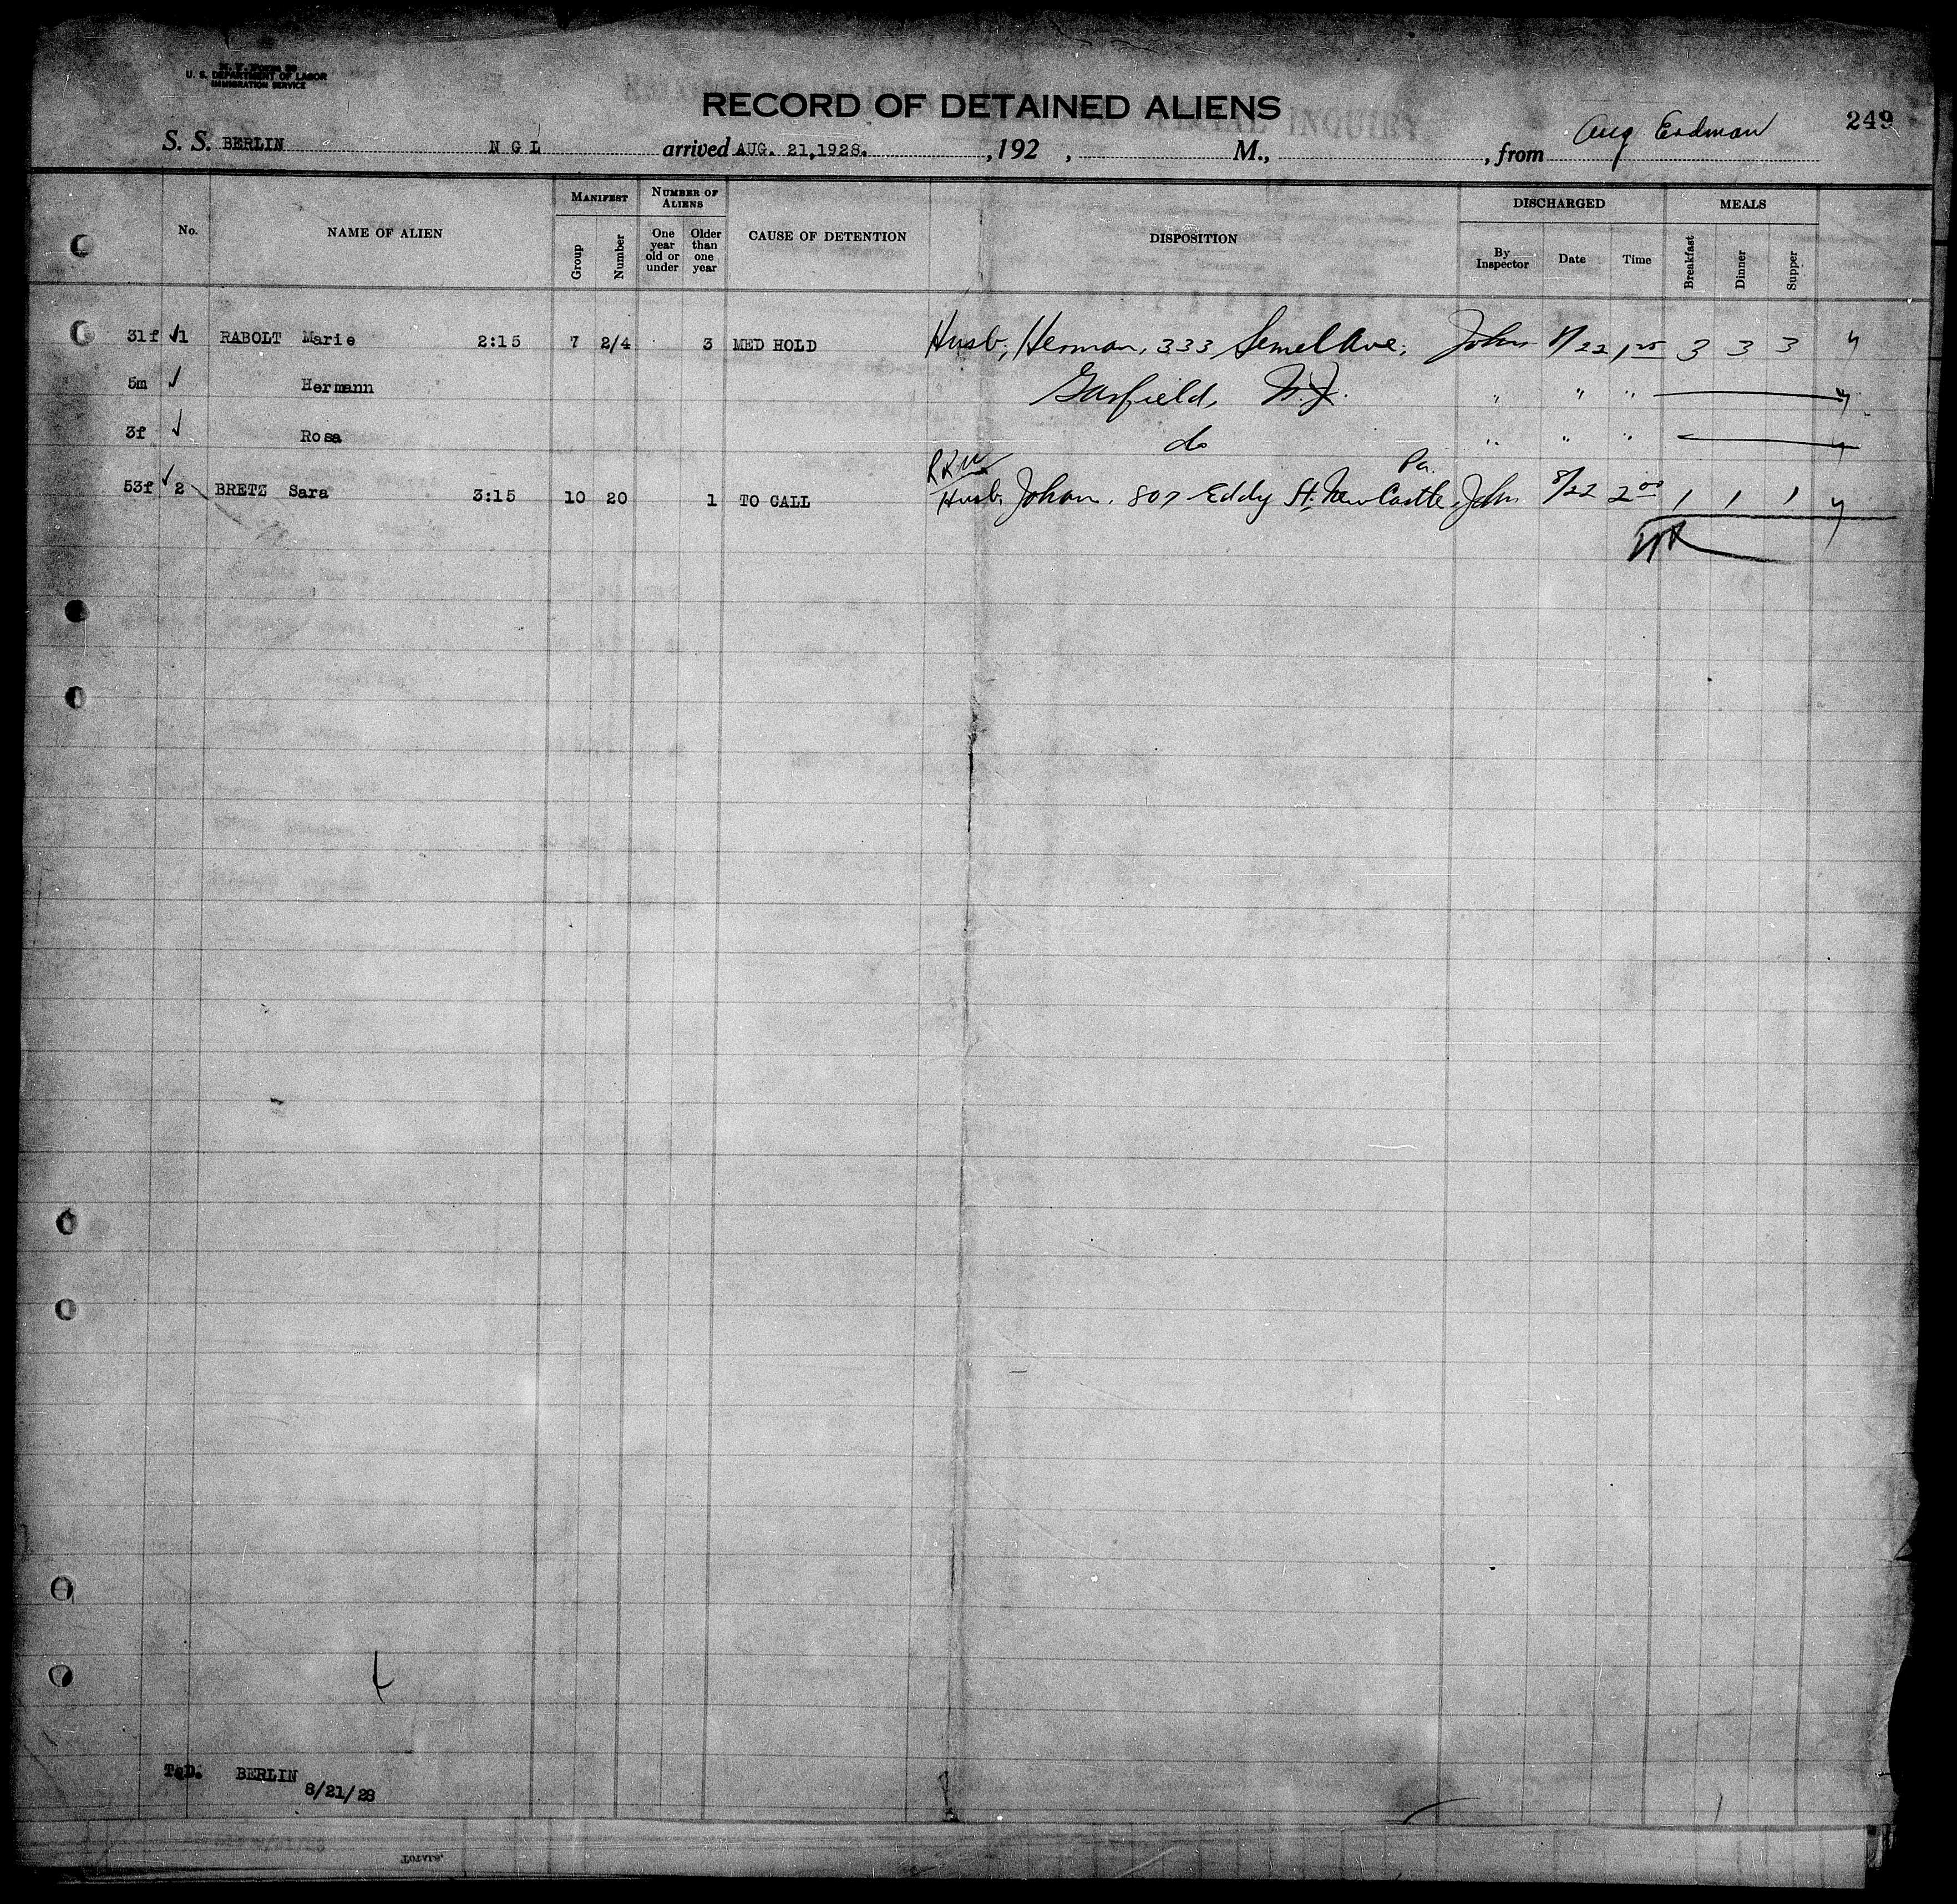 N. Y. Form 99
U. S. DEPARTMENT OF LABOR
IMMIGRATION SERVICE
RECORD OF DETAINED ALIENS
249
S. S. BERLIN N G L arrived AUG. 21, 1928. , 192 , M., , from Aug Erdman
No. NAME OF ALIEN MANIFEST NUMBER OF ALIENS CAUSE OF DETENTION DISPOSITION DISCHARGED MEALS
Group Number One year old or under Older than one year By Inspector Date Time Breakfast Dinner Supper
31f √1 RABOLT Marie 2:15 7 2/4 3 MED HOLD Husb, Herman, 333 Semel Ave, John 8/22 1 25 3 3 3
5m √ Hermann Garfield, N.J. " " "
3f √ Rosa do " " "
RRW Pa.
53f √2 BRETZ Sara 3:15 10 20 1 TO CALL Husb. Johan, 807 Eddy St. New Castle, John 8/22 2 00 1 1 1
T&D. BERLIN
8/21/28
TOTALS.